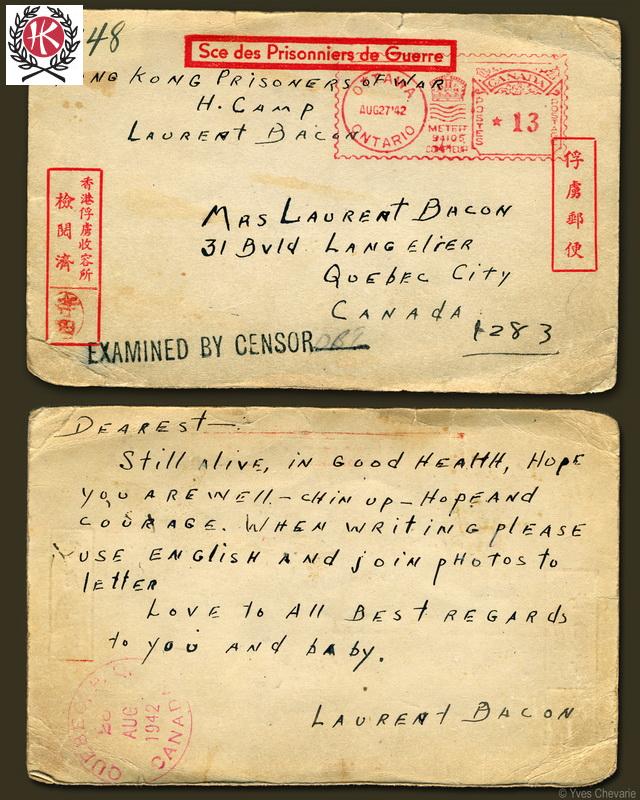 HK
48
Sce des Prisonniers de Guerre
NG KONG PRISONERS OF WAR
H. CAMP
LAURENT BACON
OTTAWA
AUG27'42
ONTARIO
CANADA
POSTES
13
METER
俘虜郵便
香港俘虜收容所
檢閲濟
MRS LAURENT BACON
31 Bvld LANGELIER
QUEBEC CITY
CANADA
1283
EXAMINED BY CENSOR
DEAREST—
Still Alive, in GOOD HEALTH, HOPE
YOU ARE WELL - CHIN UP - HOPE AND
COURAGE. WHEN WRITING PLEASE
USE ENGLISH AND join photos to
letter
LOVE to All BEST REGARDS
to YOU AND bAby.
LAURENT BACON
QUEBEC
AUG
1942
CANADA
© Yves Chevarie